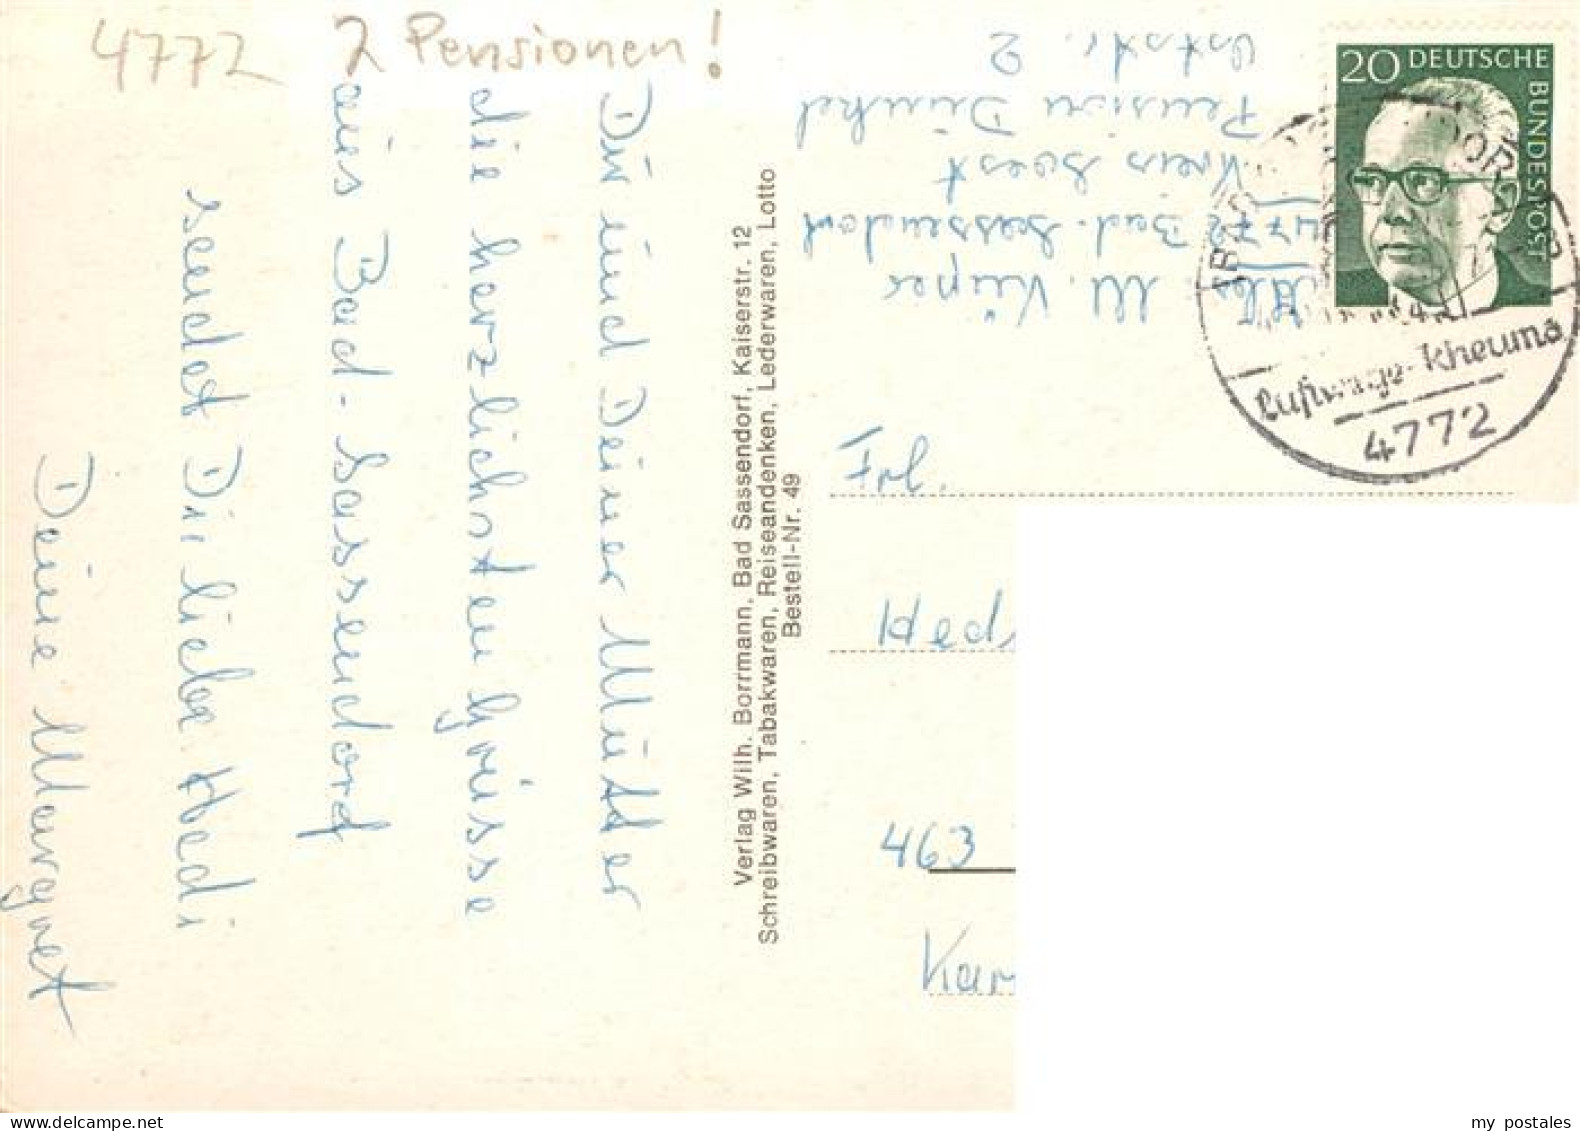 4772 2 Pensionen!
Dir und Deiner Mutter
die herzlichsten Grüsse
aus Bad-Sassendorf
sendet Dir liebe Hedi
Deine Margret
Verlag Wilh. Borrmann, Bad Sassendorf, Kaiserstr. 12
Schreibwaren, Tabakwaren, Reiseandenken, Lederwaren, Lotto
Bestell-Nr. 49
4772 Bad-Sassendorf
Kreis Soest
Pension Dünkel
Oststr. 2
20 DEUTSCHE
BUNDESPOST
Rheuma
4772
Frl.
Hed
463
Kar
my postales